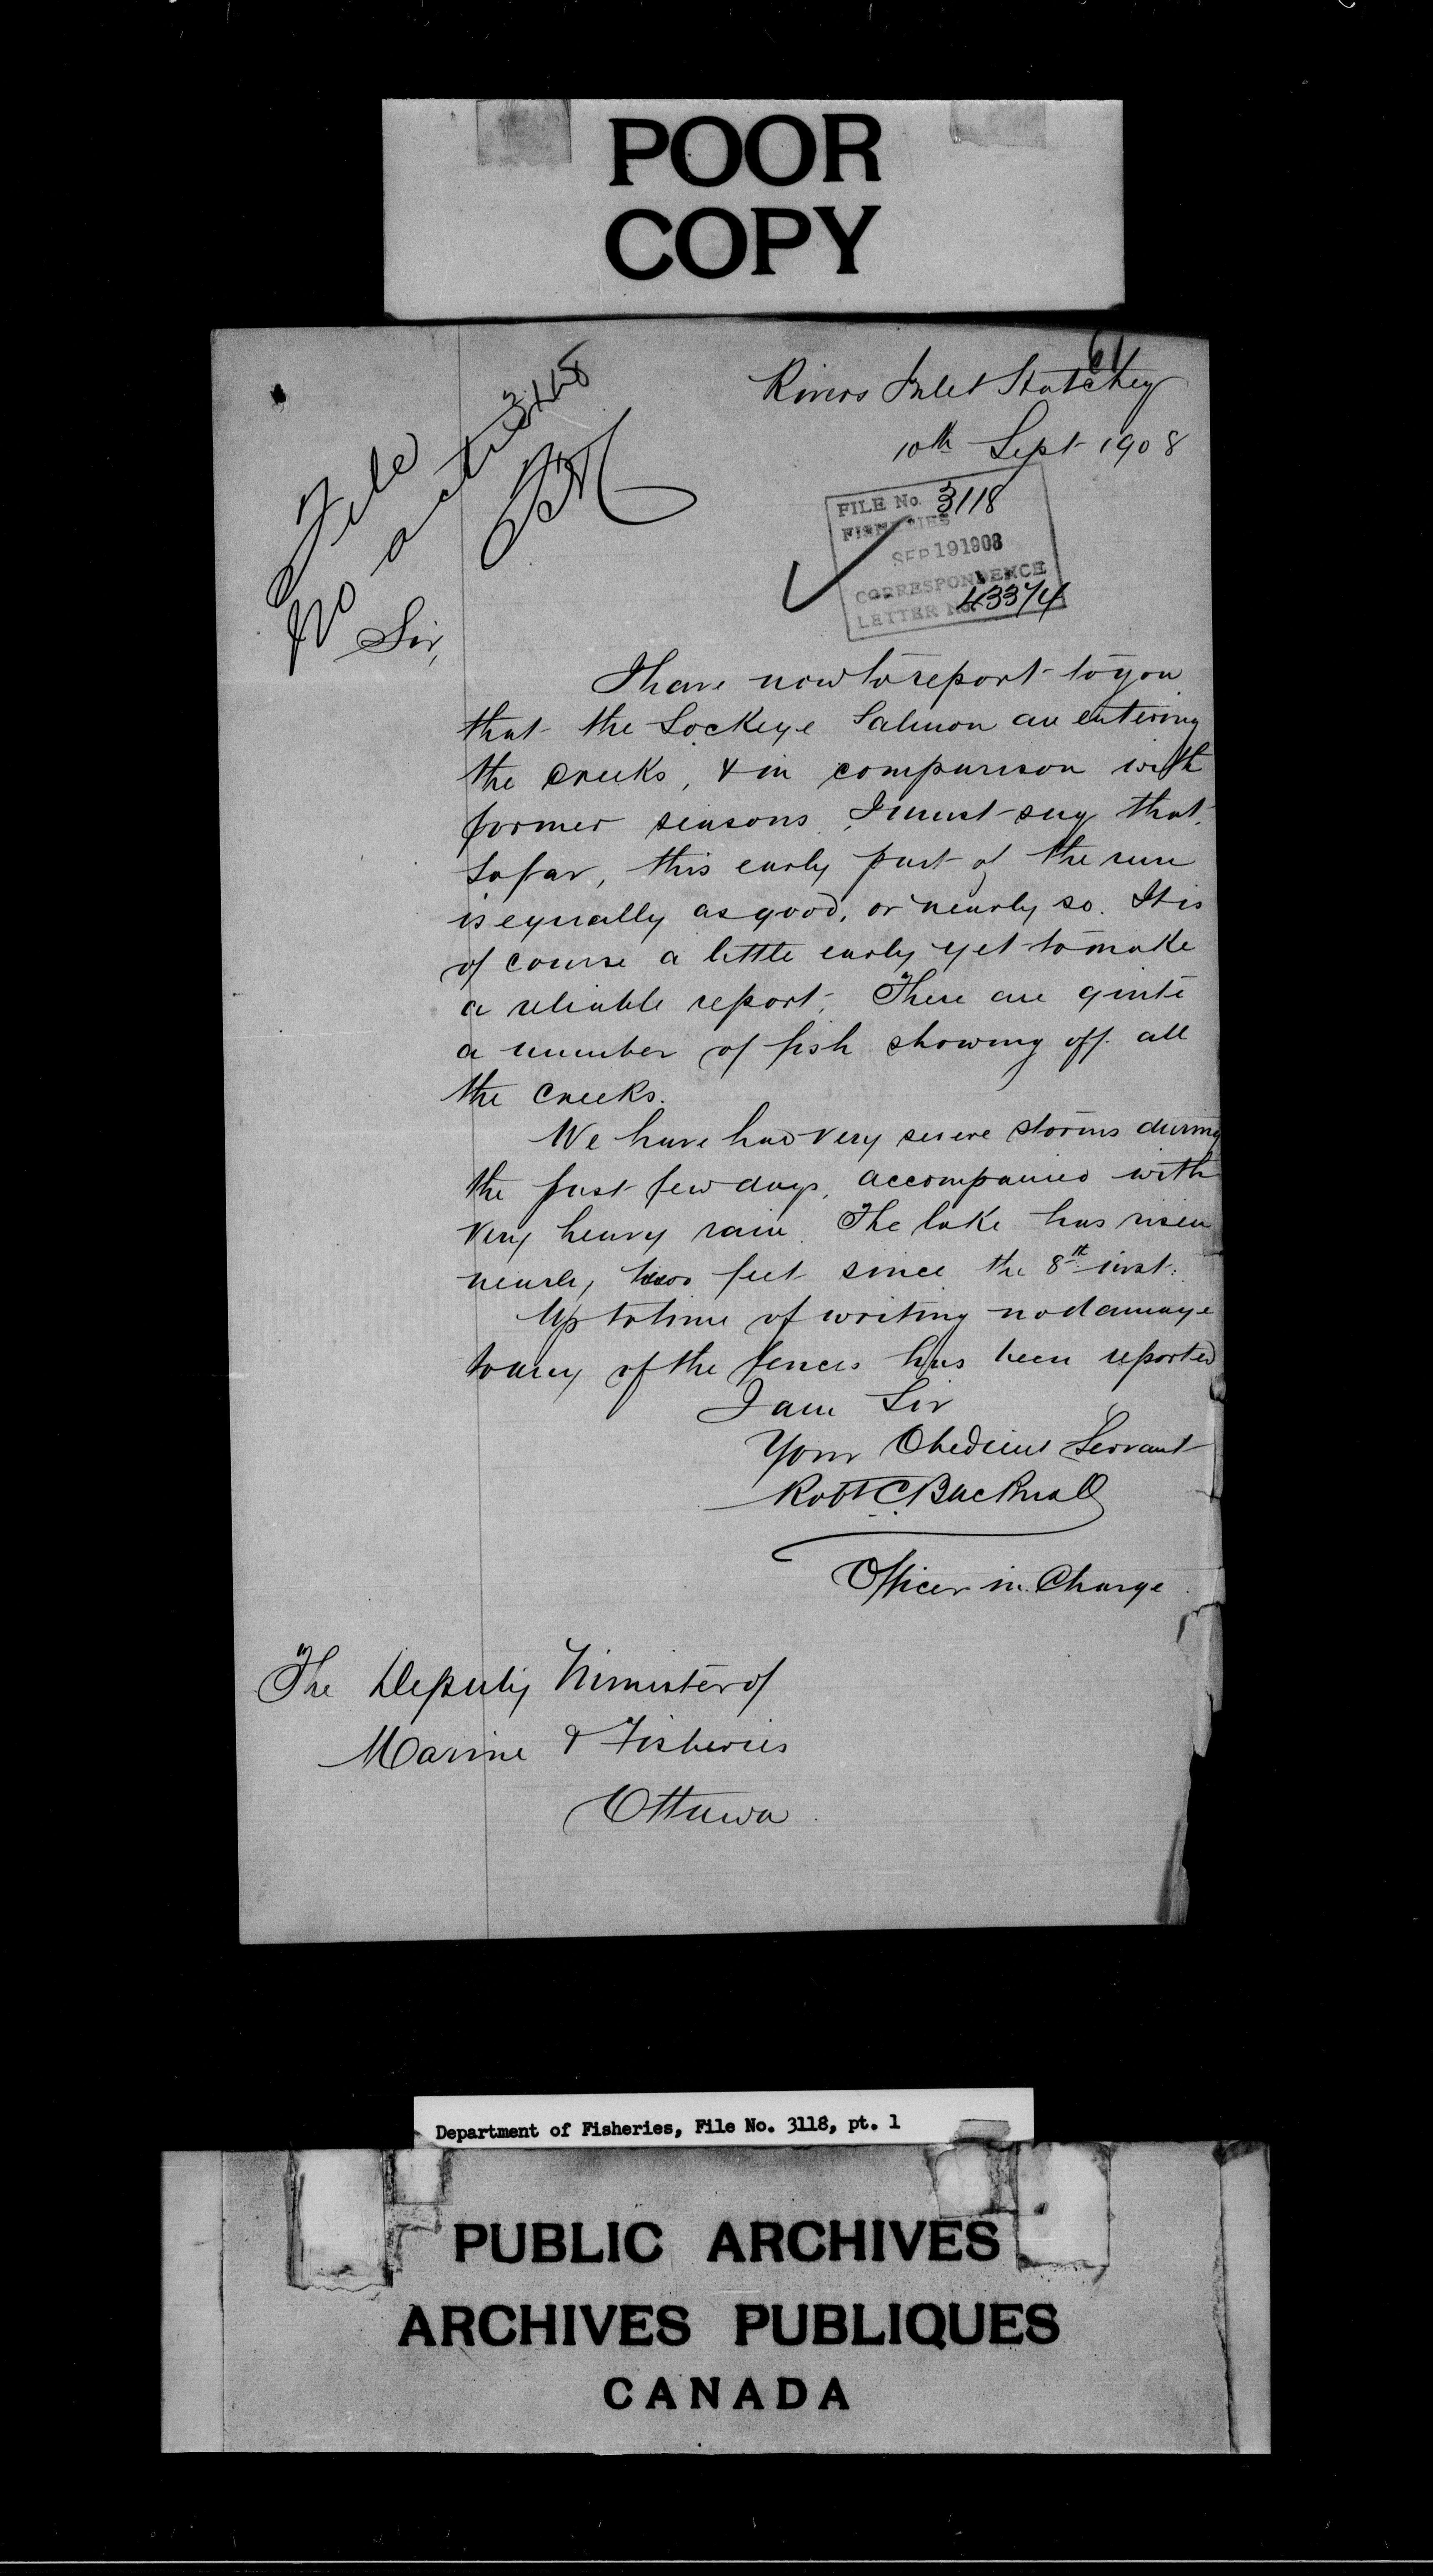 POOR
COPY
61
Rivers Inlet Hatchery
10th Sept 1908
File 3118
No action
FILE No. 3118
FISHERIES
SEP 19 1908
CORRESPONDENCE
LETTER No. 43374
Sir,
I have now to report to you
that the Sockeye Salmon are entering
the creeks, & in comparison with
former seasons, I must say that,
so far, this early part of the run
is equally as good, or nearly so. It is
of course a little early yet to make
a reliable report. There are quite
a number of fish showing off all
the creeks.
We have had very severe storms during
the past few days, accompanied with
very heavy rain. The lake has risen
nearly two feet since the 8th inst.
Up to time of writing no damage
to any of the fences has been reported
I am Sir
Your Obedient Servant
Robt C. Bucknall
Officer in Charge
The Deputy Minister of
Marine & Fisheries
Ottawa.
Department of Fisheries, File No. 3118, pt. 1
PUBLIC ARCHIVES
ARCHIVES PUBLIQUES
CANADA